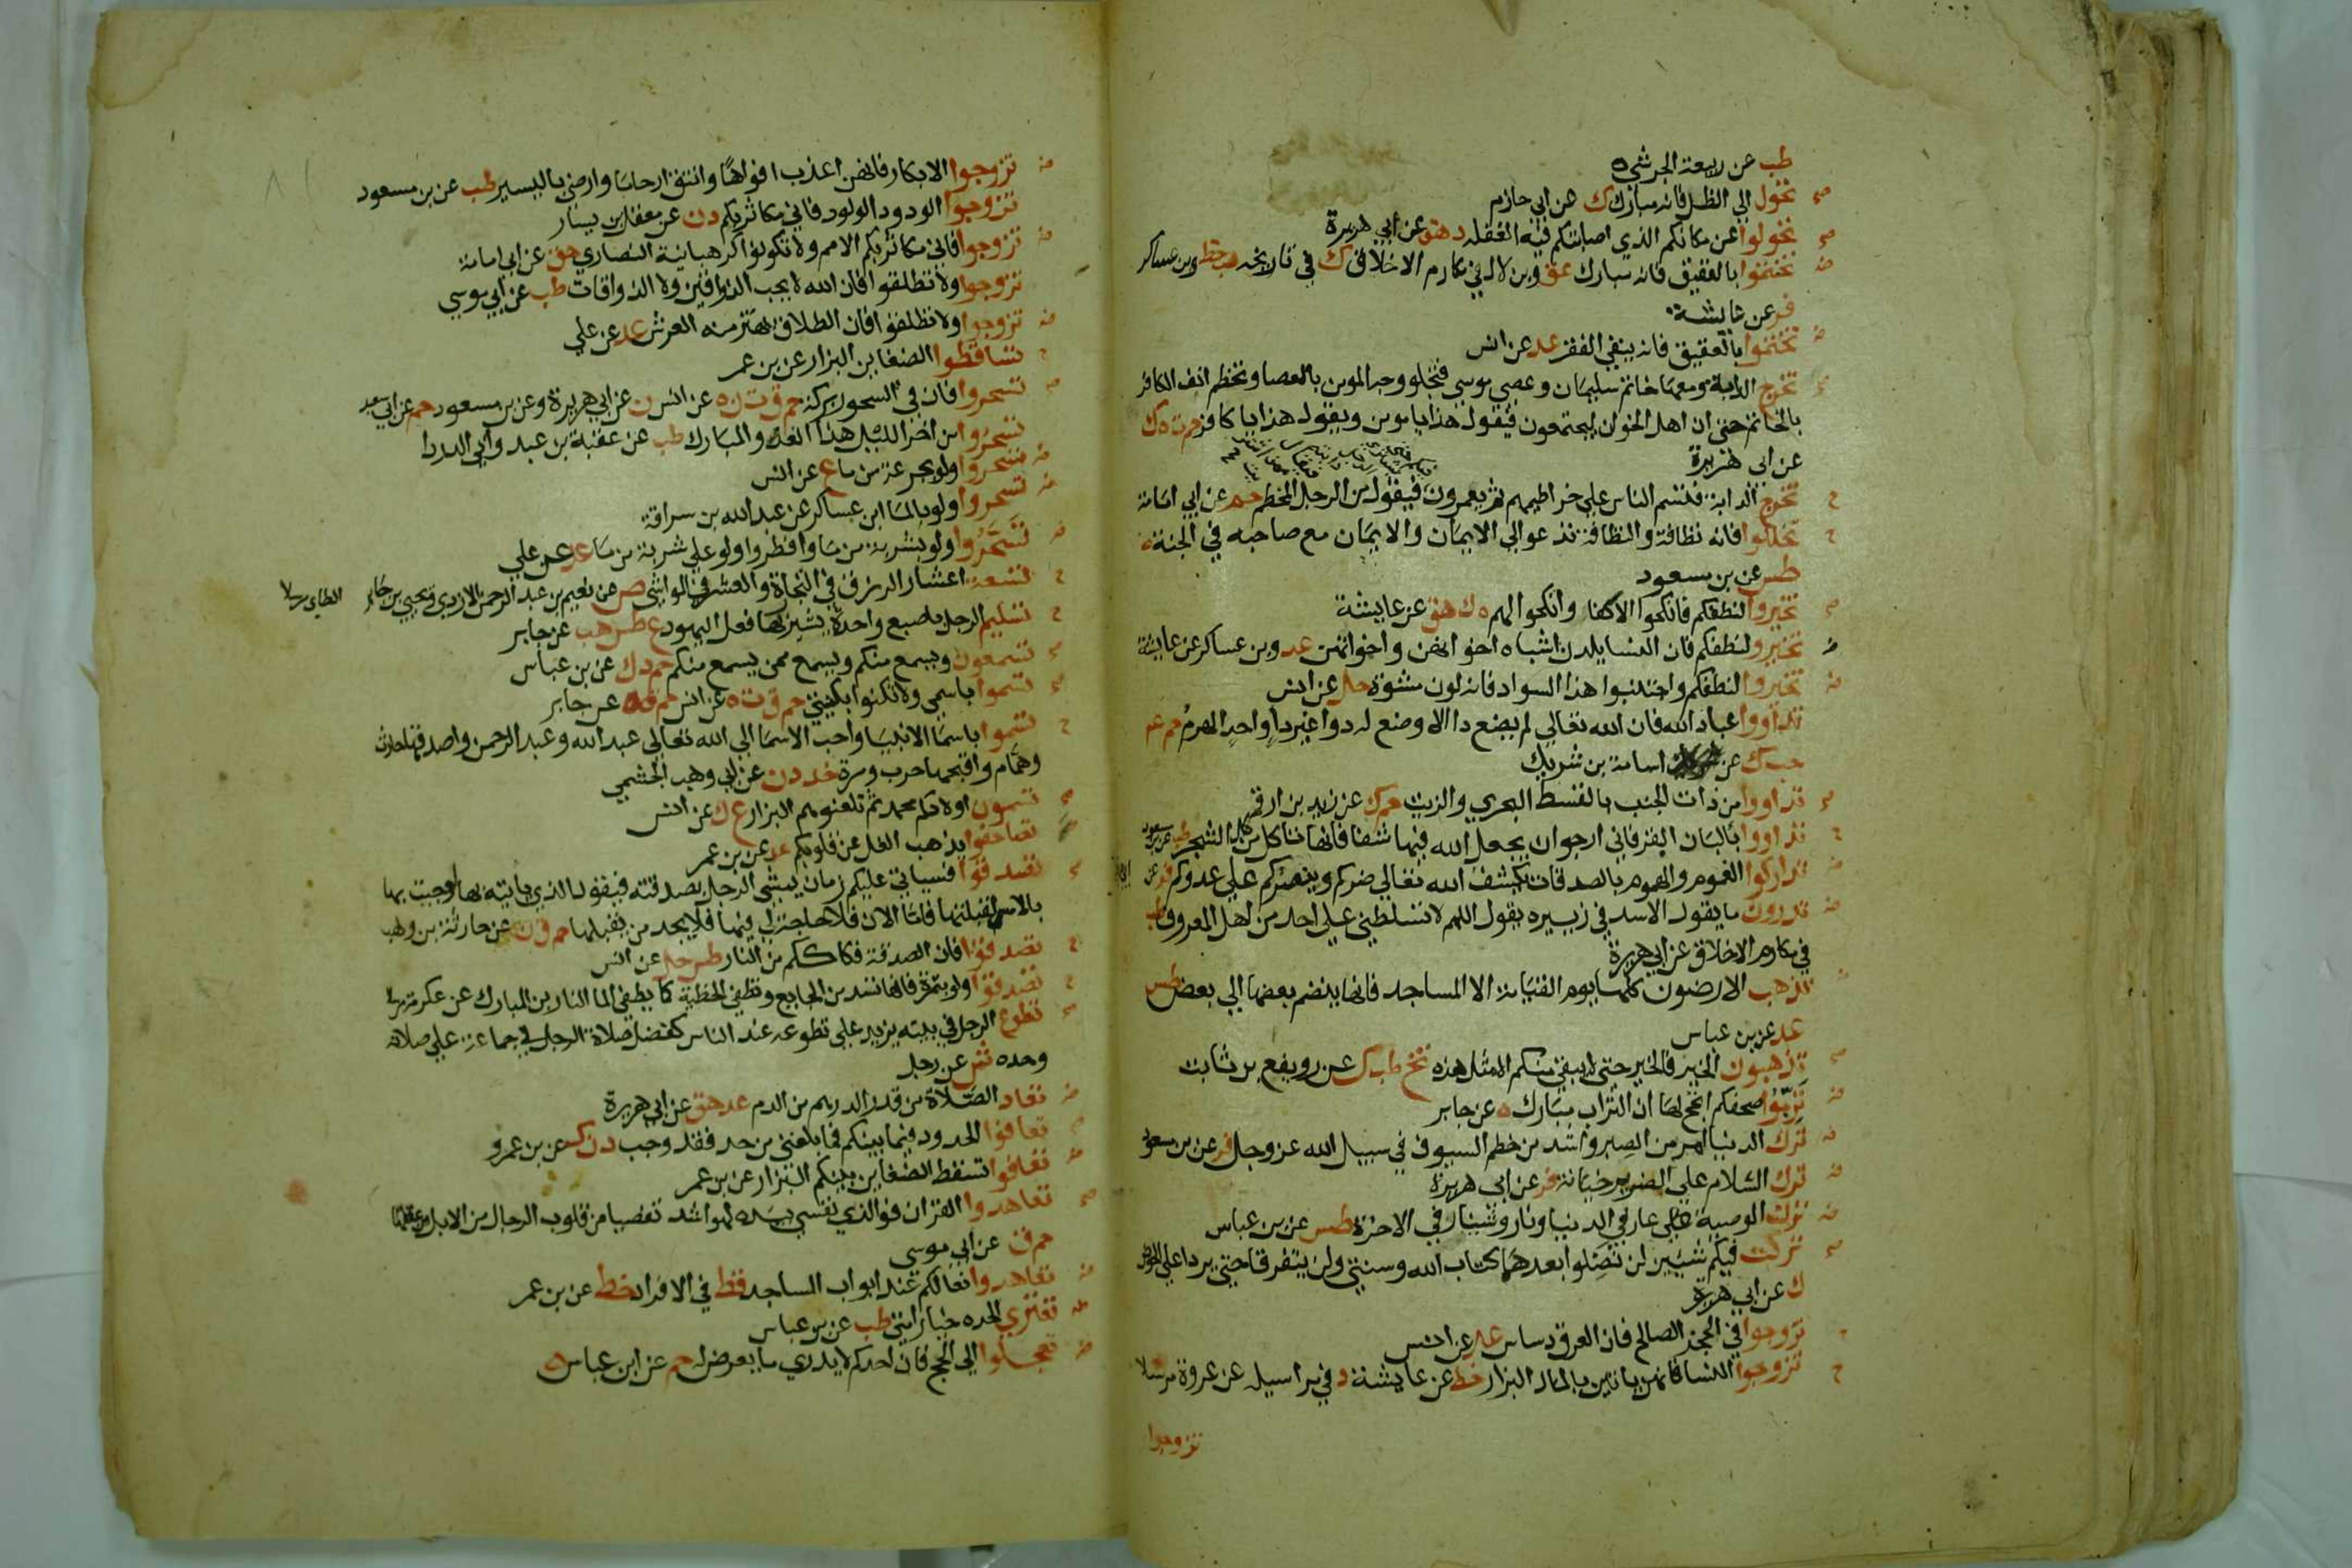 طب عن ربيعة الجرشي ه
صح تحول الي الظل فانه مبارك ك عن ابي حازم
صح تحولوا عن مكانكم الذي اصابتكم فيه الغفله د هق عن ابي هريرة
ض تختموا بالعقيق فانه مبارك عق وبن لال في مكارم الاخلاق ك في تاريخه هب خط وبن عساكر
فر عن عايشة
ض تختموا بالعقيق فانه ينفي الفقر عد عن انس
صح تخرج الدابة ومعها خاتم سليمان وعصي موسي فتجلو وجه المومن بالعصا وتخطم انف الكافر
بالخاتم حتي ان اهل الخوان ليجتمعون فيقول هذا يا مومن ويقول هذا يا كافر حم ت ه ك
عن ابي هريرة
ح تخرج الدابة فتسم الناس علي خراطيمهم ثم يعمرون فيقول من الرجل المخطم حم عن ابي امامة
ح تخللوا فانه نظافة والنظافة تدعوالي الايمان والايمان مع صاحبه في الجنة
طس عن بن مسعود
صح تخيروا لنطفكم فانكحوا الاكفا وانكحوا اليهم ه ك هق عن عايشة
ض تخيروا لنطفكم فان النسا يلدن اشباه اخوانهن واخواتهن عد وبن عساكر عن عايشة
ض تخيروا لنطفكم واجتنبوا هذا السواد فانه لون مشوه حل عن انس
تداووا عباد الله فان الله تعالي لم يضع دا الا وضع له دوا غير دا واحد الهرم حم عم
حب ك عن اسامة بن شريك
صح تداووا من ذات الجنب بالقسط البحري والزيت حم ك عن زيد بن ارقم
ح تداووا بالبان البقر فاني ارجوان يجعل الله فيها شفا فانها تاكل من كل الشجر طب عن بن مسعود
ض تداركوا الغموم والهموم بالصدقات يكشف الله تعالي ضركم وينصركم علي عدوكم فر عن
ض تدرون ما يقول الاسد في زبيره يقول اللهم لا تسلطني علي احد من اهل المعروف طب
في مكارم الاخلاق عن ابي هريرة
ض تذهب الارضون كلها يوم القيامة الا المساجد فانها ينضم بعضها الي بعض طس
عد عن بن عباس
صح تذهبون الخير فالخير حتي لا يبقي منكم الا مثل هذه تخ طب ك عن رويفع بن ثابت
ض تربوا صحفكم انجح لها ان التراب مبارك ه عن جابر
ض ترك الدنيا امر من الصبر واشد من خطم السيوف في سبيل الله عز وجل فر عن بن مسعود
ض ترك السلام علي الضرير خيانة فر عن ابي هريرة
ض ترك الوصية عار في الدنيا ونار وشنار في الاخرة طس عن بن عباس
صح تركت فيكم شيين لن تضلوا بعدهما كتاب الله وسنتي ولن يتفرقا حتي يردا علي الحوض
ك عن ابي هريرة
ح تزوجوا في الحجز الصالح فان العرق دساس عد عن انس
ح تزوجوا النسا فانهن ياتين بالمال البزار خط عن عايشة د في مراسيله عن عروة مرسلا
تزوجوا
ض تزوجوا الابكار فانهن اعذب افواها وانتق ارحاما وارضي باليسير طب عن بن مسعود
تزوجوا الودود الولود فاني مكاثر بكم د ن عن معقل بن يسار
ض تزوجوا فاني مكاثر بكم الامم ولا تكونوا كرهبانية النصاري هق عن ابي امامة
تزوجوا ولا تطلقوا فان الله لا يحب الذواقين ولا الذواقات طب عن ابي موسي
ض تزوجوا ولا تطلقوا فان الطلاق يهتز منه العرش عد عن علي
ح تساقطوا الضغاين البزار عن بن عمر
صح تسحروا فان في السحور بركة حم ق ت ن ه عن انس ن عن ابي هريرة وعن بن مسعود حم عن ابي سعيد
تسحروا من اخر الليل هذا الغدا المبارك طب عن عقبة بن عبد وابي الدردا
ض تسحروا ولو بجرعة من ما ع عن انس
ض تسحروا ولو بالما ابن عساكر عن عبد الله بن سراقة
ض تسحروا ولو بشربة من ما وافطروا ولو علي شربة من ما عد عن علي
ح تسعة اعشار الرزق في التجارة والعشر في المواشي ص عن نعيم بن عبد الرحمن الازدي ويحيي بن جابر الطاي مرسلا
ح تسليم الرجل باصبع واحدة يشير بها فعل اليهود ع طس هب عن جابر
صح تسمعون ويسمع منكم ويسمع ممن يسمع منكم حم د ك عن بن عباس
صح تسموا باسمي ولا تكنوا بكنيتي حم ق ت ه عن انس حم ق ه عن جابر
ح تسموا باسما الانبيا واحب الاسما الي الله تعالي عبد الله وعبد الرحمن واصدقها حارث
وهمام واقبحها حرب ومرة خد د ن عن ابي وهب الجشمي
صح تسمون اولادكم محمد ثم تلعنوهم البزار ع ك عن انس
تصافحوا يذهب الغل عن قلوبكم عد عن بن عمر
صح تصدقوا فسياتي عليكم زمان يمشي الرجل بصدقته فيقول الذي ياتيه بها لوجيت بها
بالامس لقبلتها فاما الان فلا حاجة لي فيها فلا يجد من يقبلها حم ق ن عن حارثة بن وهب
ح تصدقوا فان الصدقة فكاككم من النار طس حل عن انس
ح تصدقوا ولو بتمرة فانها تسد من الجايع وتطفي الخطية كما يطفي الما النار بن المبارك عن عكرمة مرسلا
صح تطوع الرجل في بيته يزيد علي تطوعه عند الناس كفضل صلاة الرجل في جماعة علي صلاته
وحده ش عن رجل
ض تعاد الصلاة من قدر الدرهم من الدم عد هق عن ابي هريرة
صح تعافوا الحدود فيما بينكم فما بلغني من حد فقد وجب د ن ك عن بن عمرو
ض تعافوا تسقط الضغاين بينكم البزار عن بن عمر
صح تعاهدوا القران فوالذي نفسي بيده لهو اشد تفصيا من قلوب الرجال من الابل من عقلها
حم ق عن ابي موسي
ض تعاهدوا نعالكم عند ابواب المساجد قط في الافراد خط عن بن عمر
ض تعتري الحده خيار امتي طب عن بن عباس
ض تعجلوا الي الحج فان احدكم لا يدري ما يعرض له حم عن ابن عباس ه